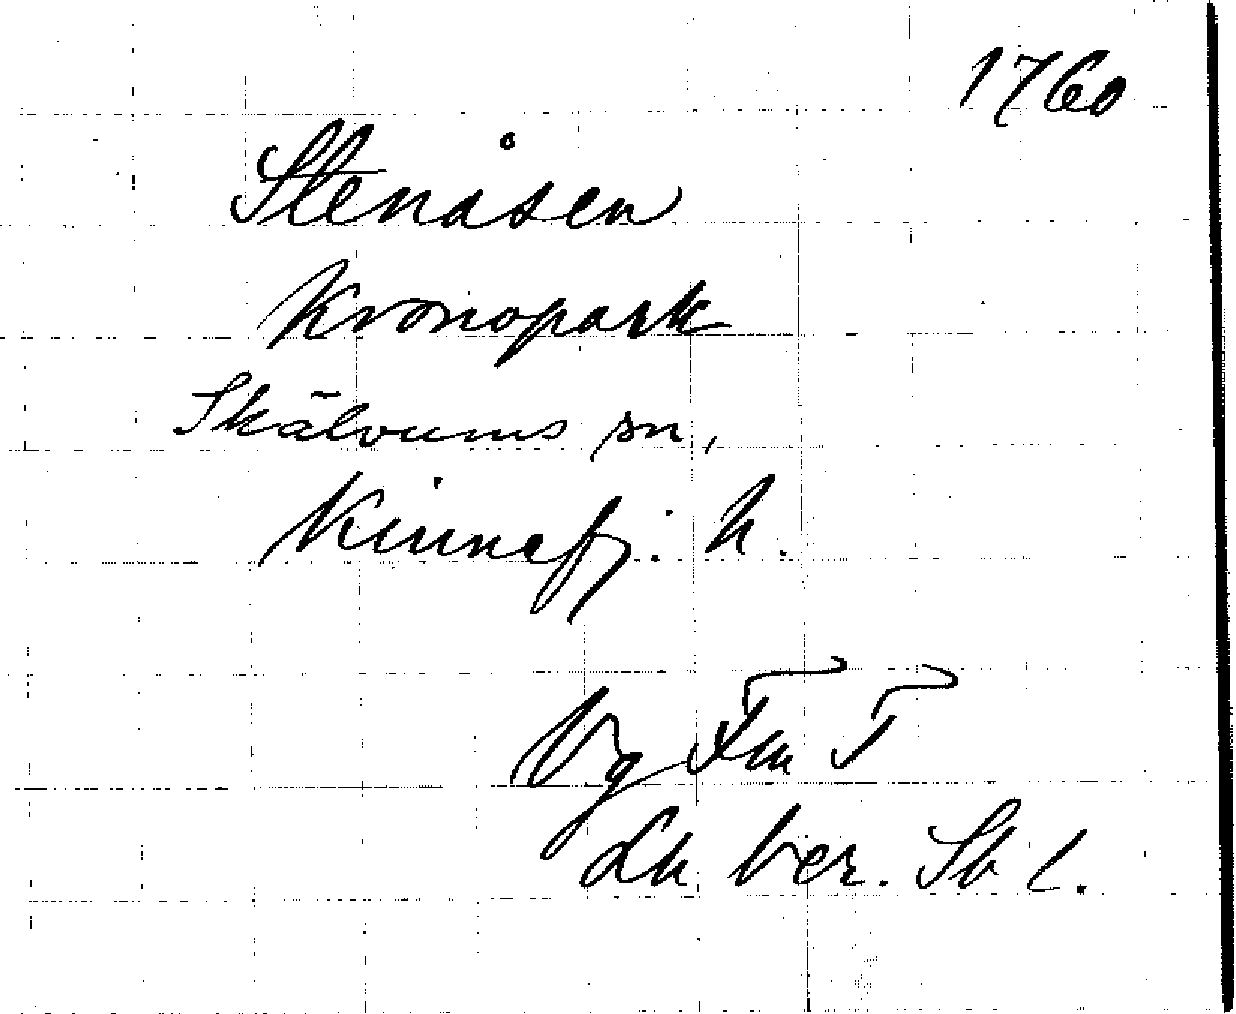 1760
Stenåsen
Kronopark
Skälvums sn,
Kinnefj. h.
Vg Fm T
Lh ber. Sk l.